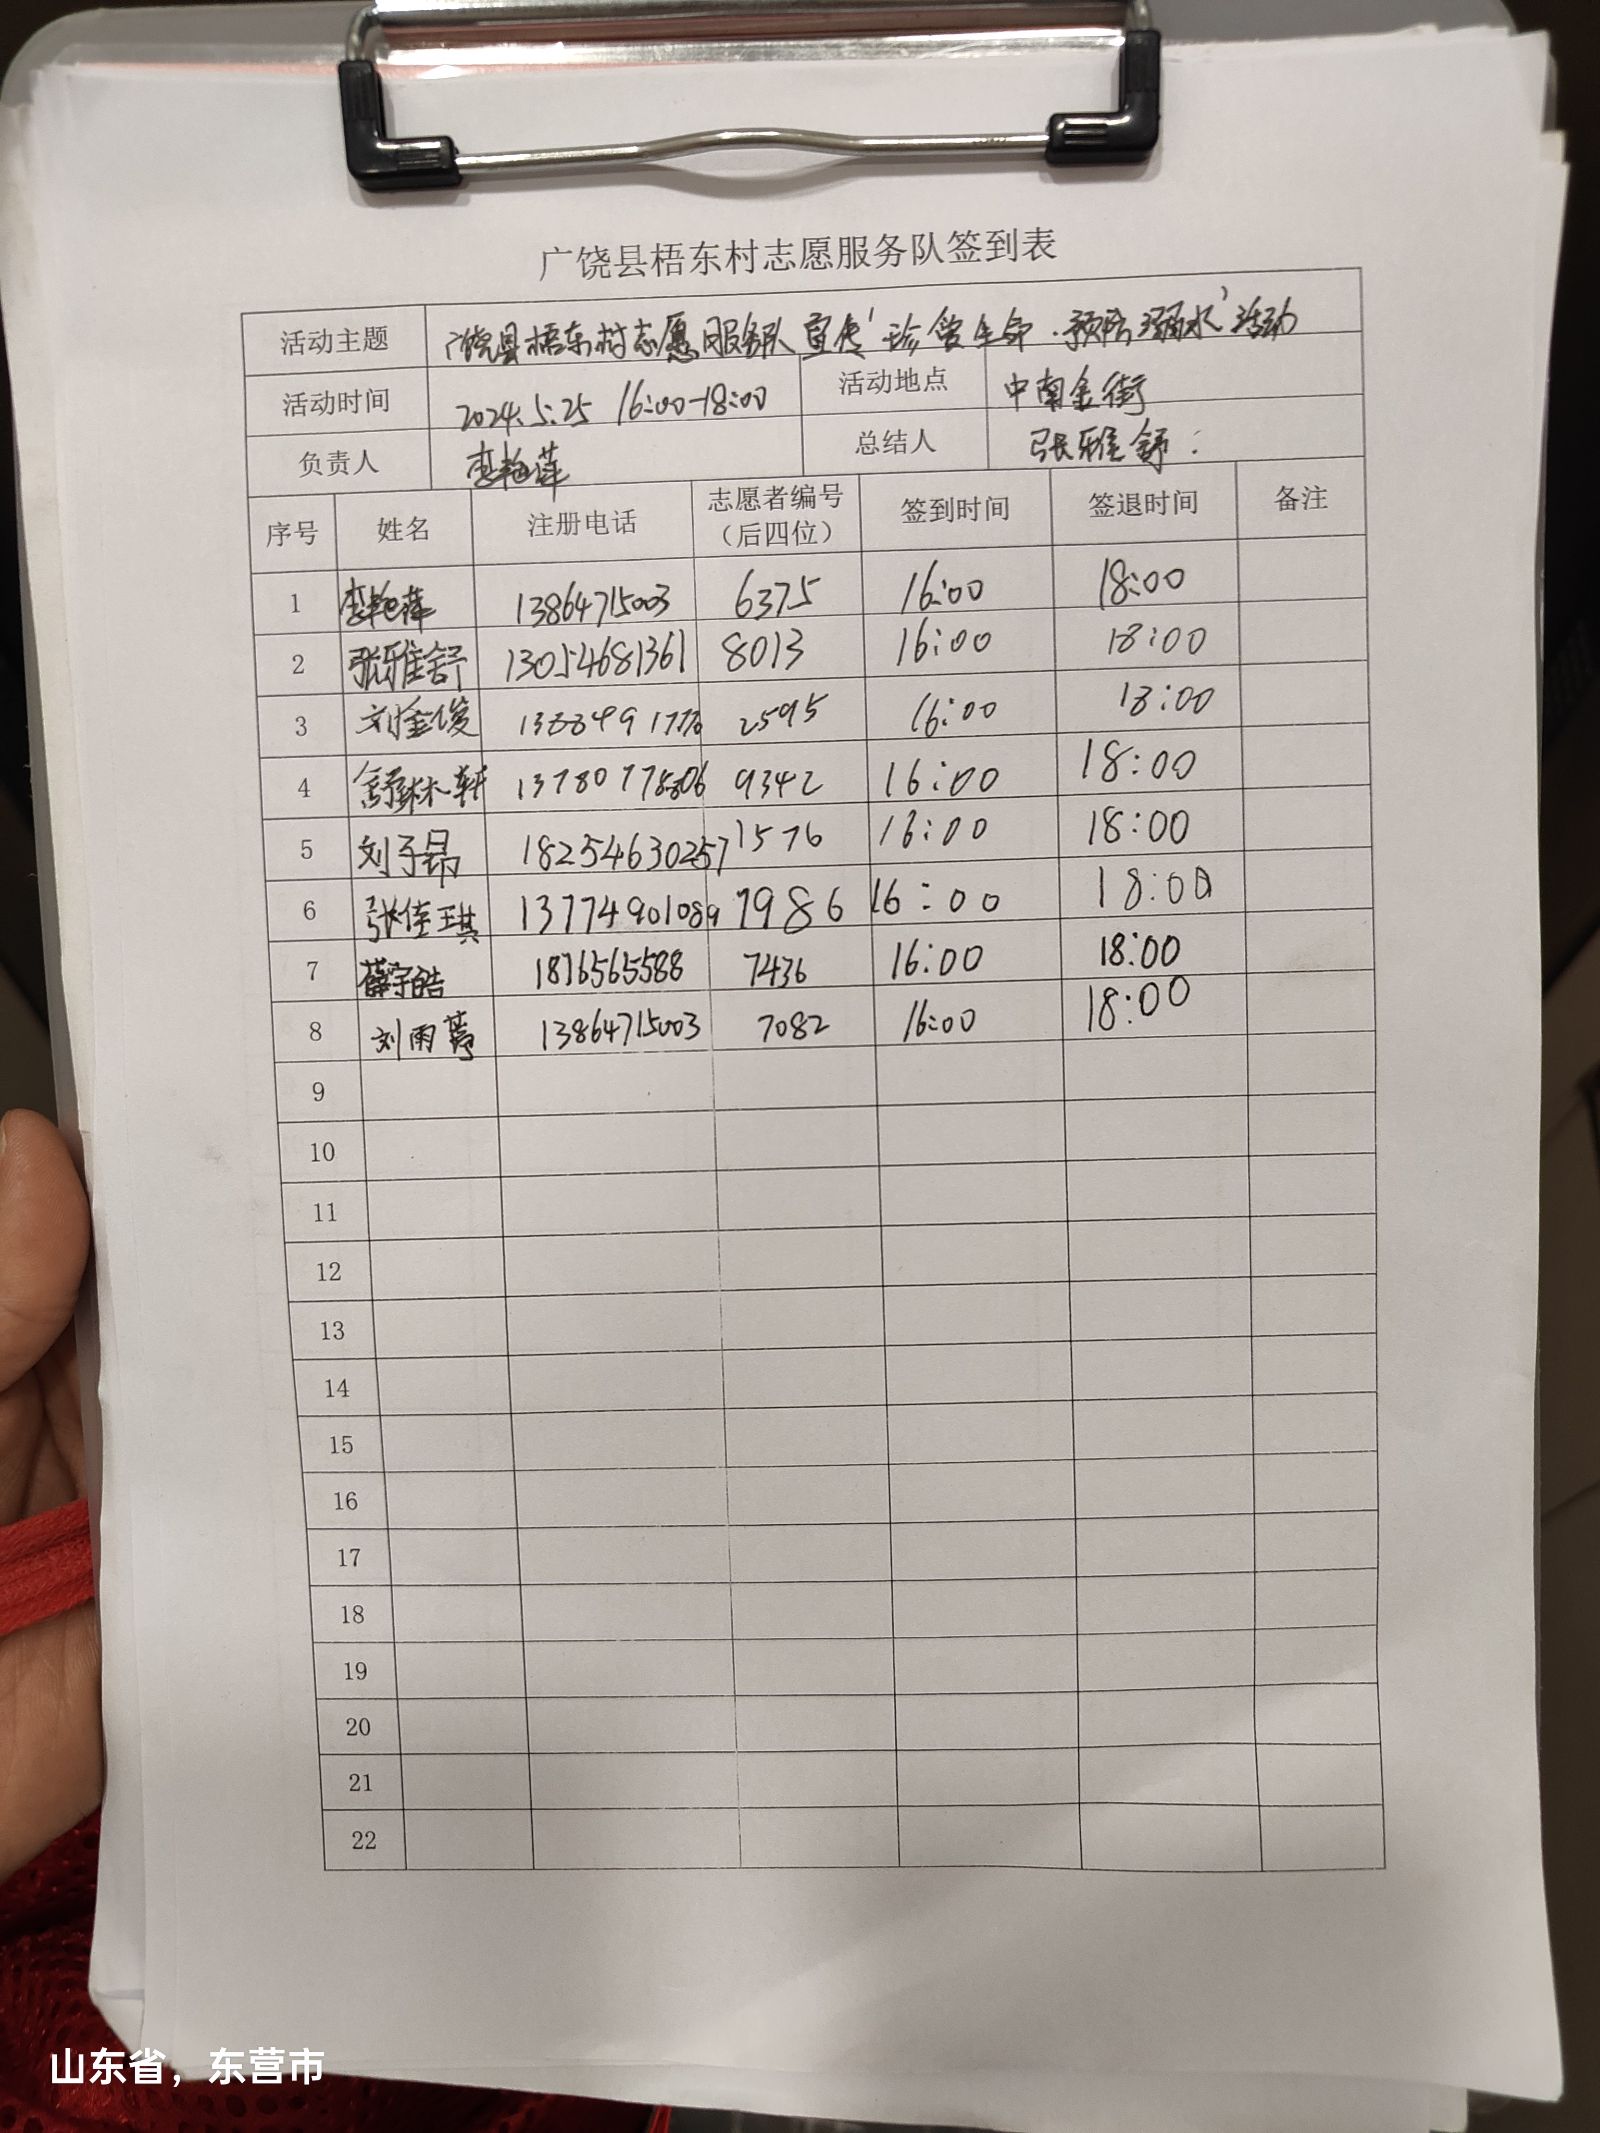 广饶县梧东村志愿服务队签到表
活动主题 广饶县梧东村志愿服务队宣传"珍爱生命·预防溺水"活动
活动时间 2024.5.25 16:00-18:00 活动地点 中南金街
负责人 李艳萍 总结人 张雅舒
序号 姓名 注册电话 志愿者编号（后四位） 签到时间 签退时间 备注
1 李艳萍 13864715003 6375 16:00 18:00
2 张雅舒 13054681361 8013 16:00 18:00
3 刘金俊 2595 16:00 18:00
4 舒林轩 9342 16:00 18:00
5 刘子昂 18254630257 1576 16:00 18:00
6 张佳琪 13774901089 7986 16:00 18:00
7 薛宇皓 1876565588 7436 16:00 18:00
8 刘雨 13864715003 7082 16:00 18:00
9
10
11
12
13
14
15
16
17
18
19
20
21
22
山东省，东营市